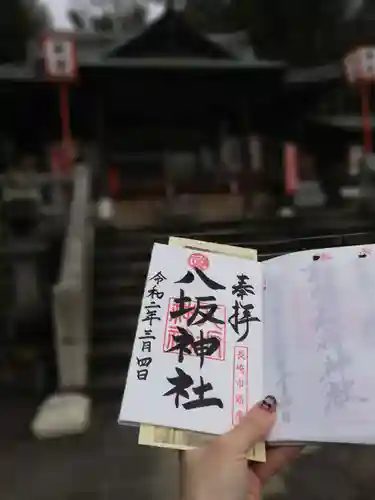 奉拝
八坂神社
令和二年三月四日
長崎市